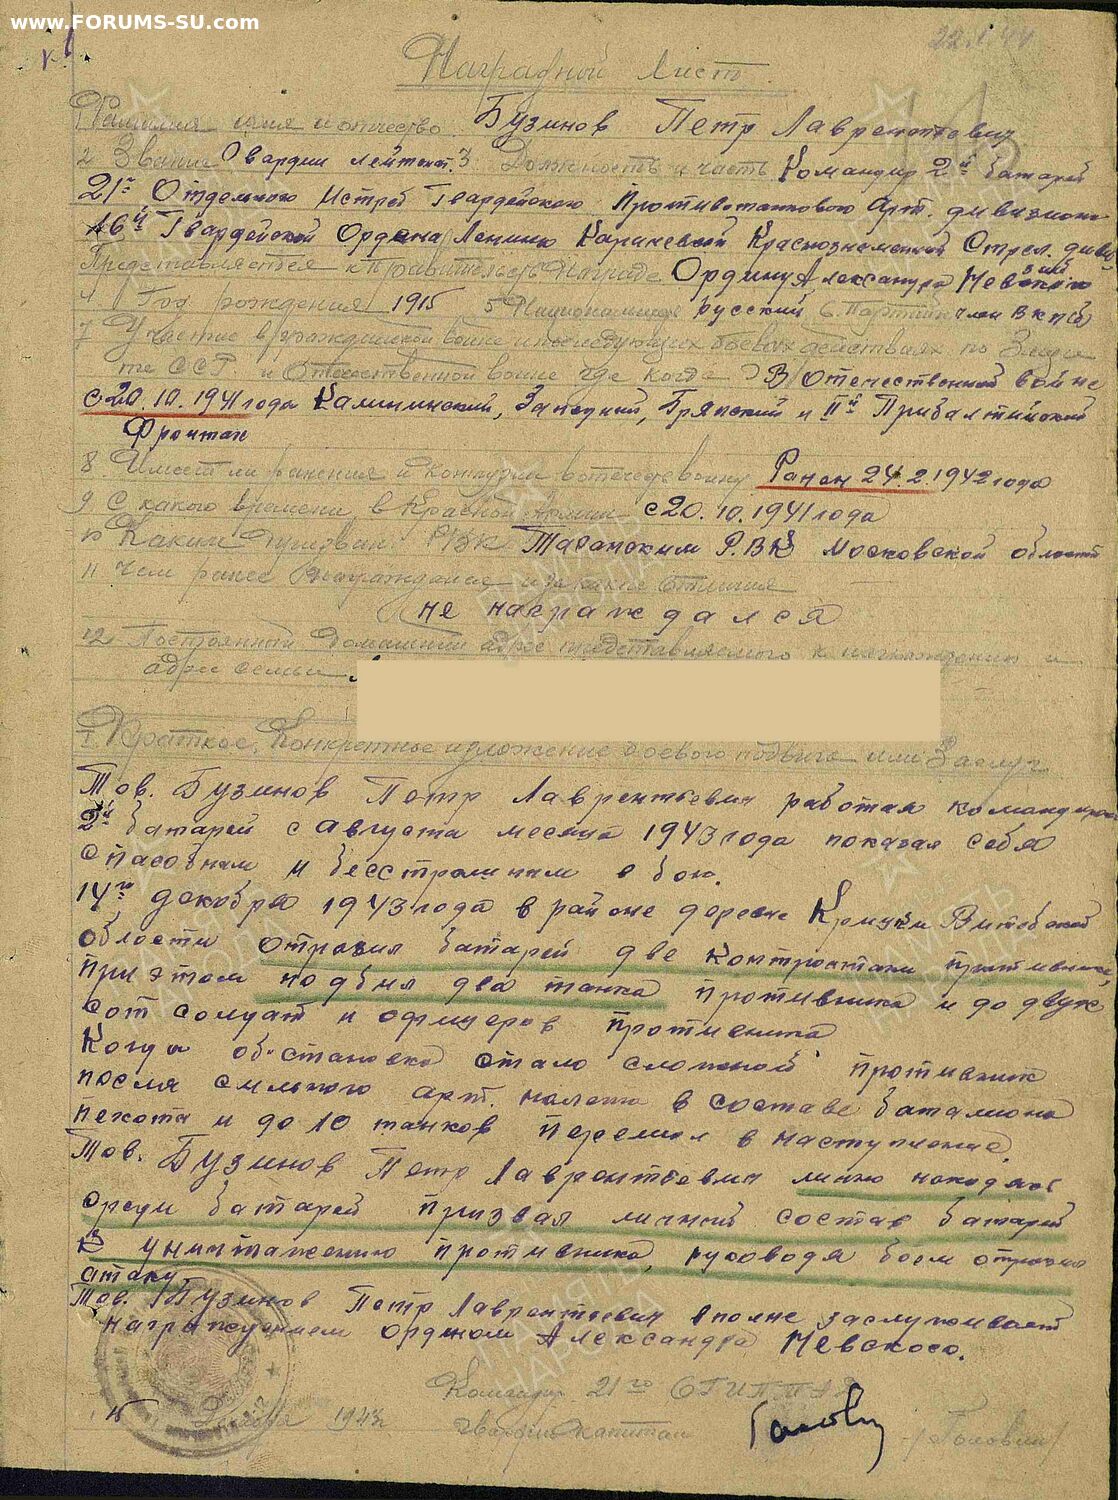 www.FORUMS-SU.com
22.1.44
Наградной Лист
1 Фамилия имя и отчество Бузинов Петр Лаврентьевич
2 Звание Гвардии лейтенант. 3 Должность и часть Командир 2й батареи
21го Отдельного Истреб Гвардейского Противотанкового Арт. дивизиона
16й Гвардейской Ордена Ленина Карачевской Краснознаменной Стрел. диви-
зии
Представляется к Правительств Награде Ордину Александра Невского
4 Год рождения 1915 5 Национальность русский 6. Партийн член ВКП(б)
7 Участие в гражданской войне и последующих боевых действиях по Защи
те СССР и Отечественной войне где когда В Отечественной войне
с 20.10.1941 года Калининский, Западный, Брянский и IIй Прибалтийский
Фронтах
8 Имеет ли ранения и контузии в отечеств войну Ранен 24.2.1942 года
9 С какого времени в Красной Армии с 20.10.1941 года
10 Каким призван РВК Р.В.К Московской области
11 Чем ранее награждение и за какие отличия
не награждался
12 Постоянный домашний адрес представляемого к награждению и
адрес семьи
I Краткое, Конкретное изложение боевого подвига или Заслуг
Тов. Бузинов Петр Лаврентьевич работая командиром
2й батареи с августа месяца 1943 года показал себя
спасобным и бесстрашным в бою.
14го декабря 1943 года в районе деревне Витебской
области отразил батареей две контратаки противника,
при этом подбил два танка противника и до двух
сот солдат и офицеров противника
Когда обстановка стало сложной противник
после сильного арт. налета в составе баталиона
пехоты и до 10 танков перешел в наступление.
Тов. Бузинов Петр Лаврентьевич лично находясь
среди батареи призвал личный состав батареи
к уничтажению противника, руководя боем отразил
атаку
Тов. Бузинов Петр Лаврентьевич вполне заслуживает
награждением орденом Александра Невского.
Командир 21го ОГИПТАД
15 Декабря 1943г гвардии капитан /Головин/